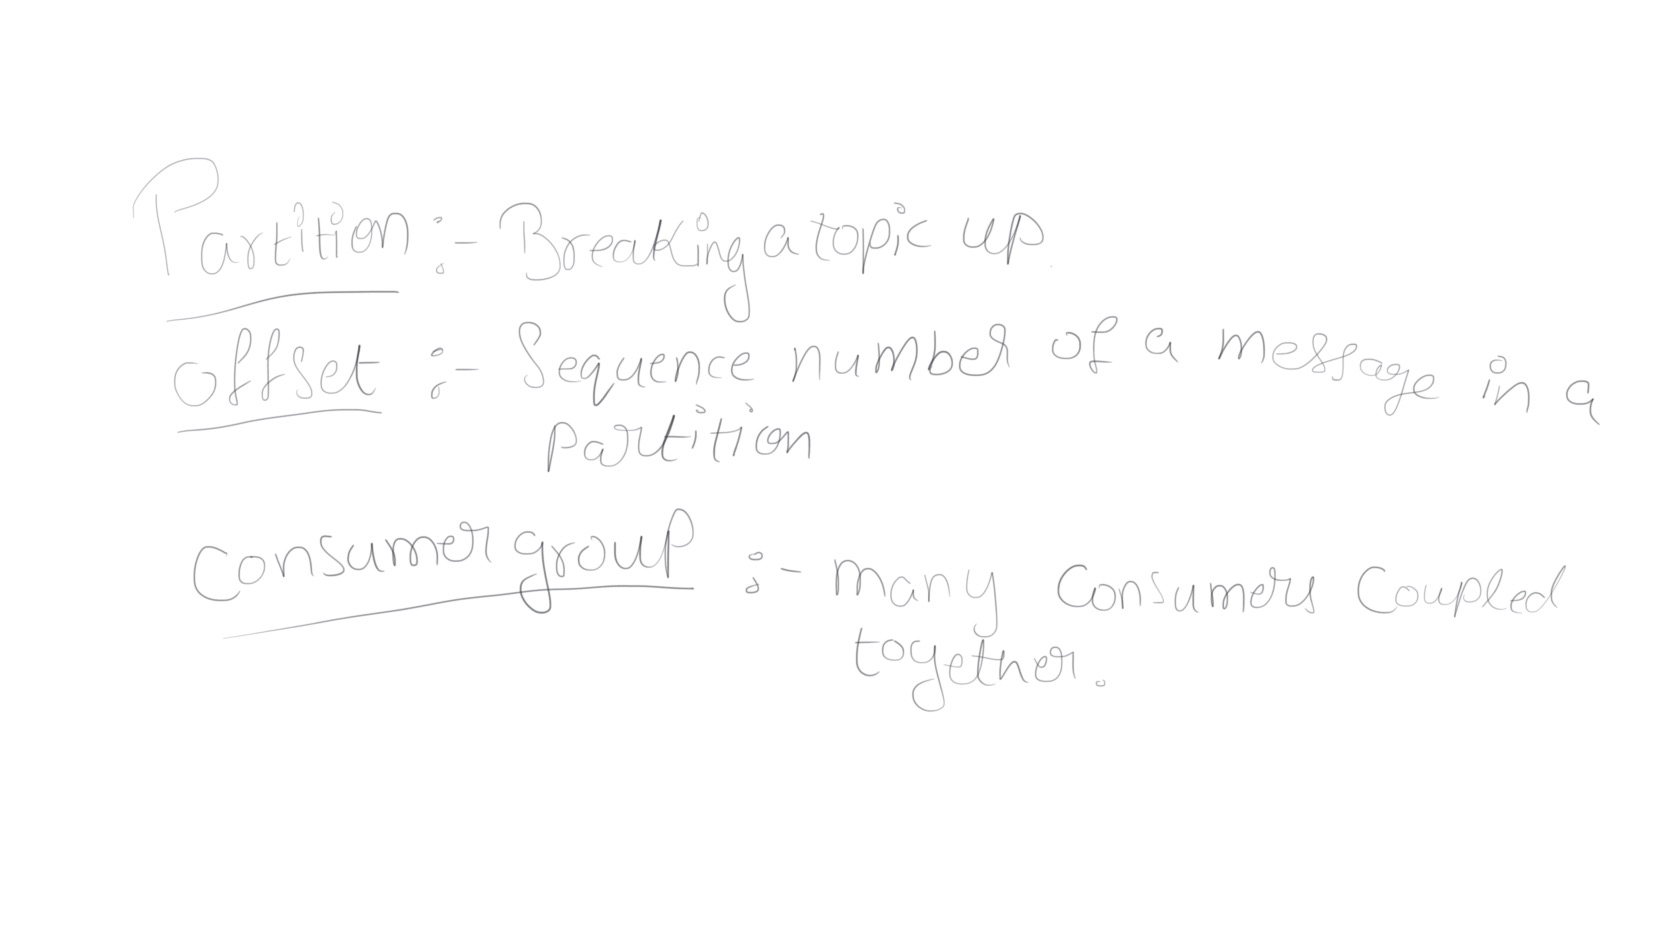 Partition :- Breaking a topic up.
offset :- Sequence number of a message in a
partition
Consumer group :- many Consumers Coupled
together.